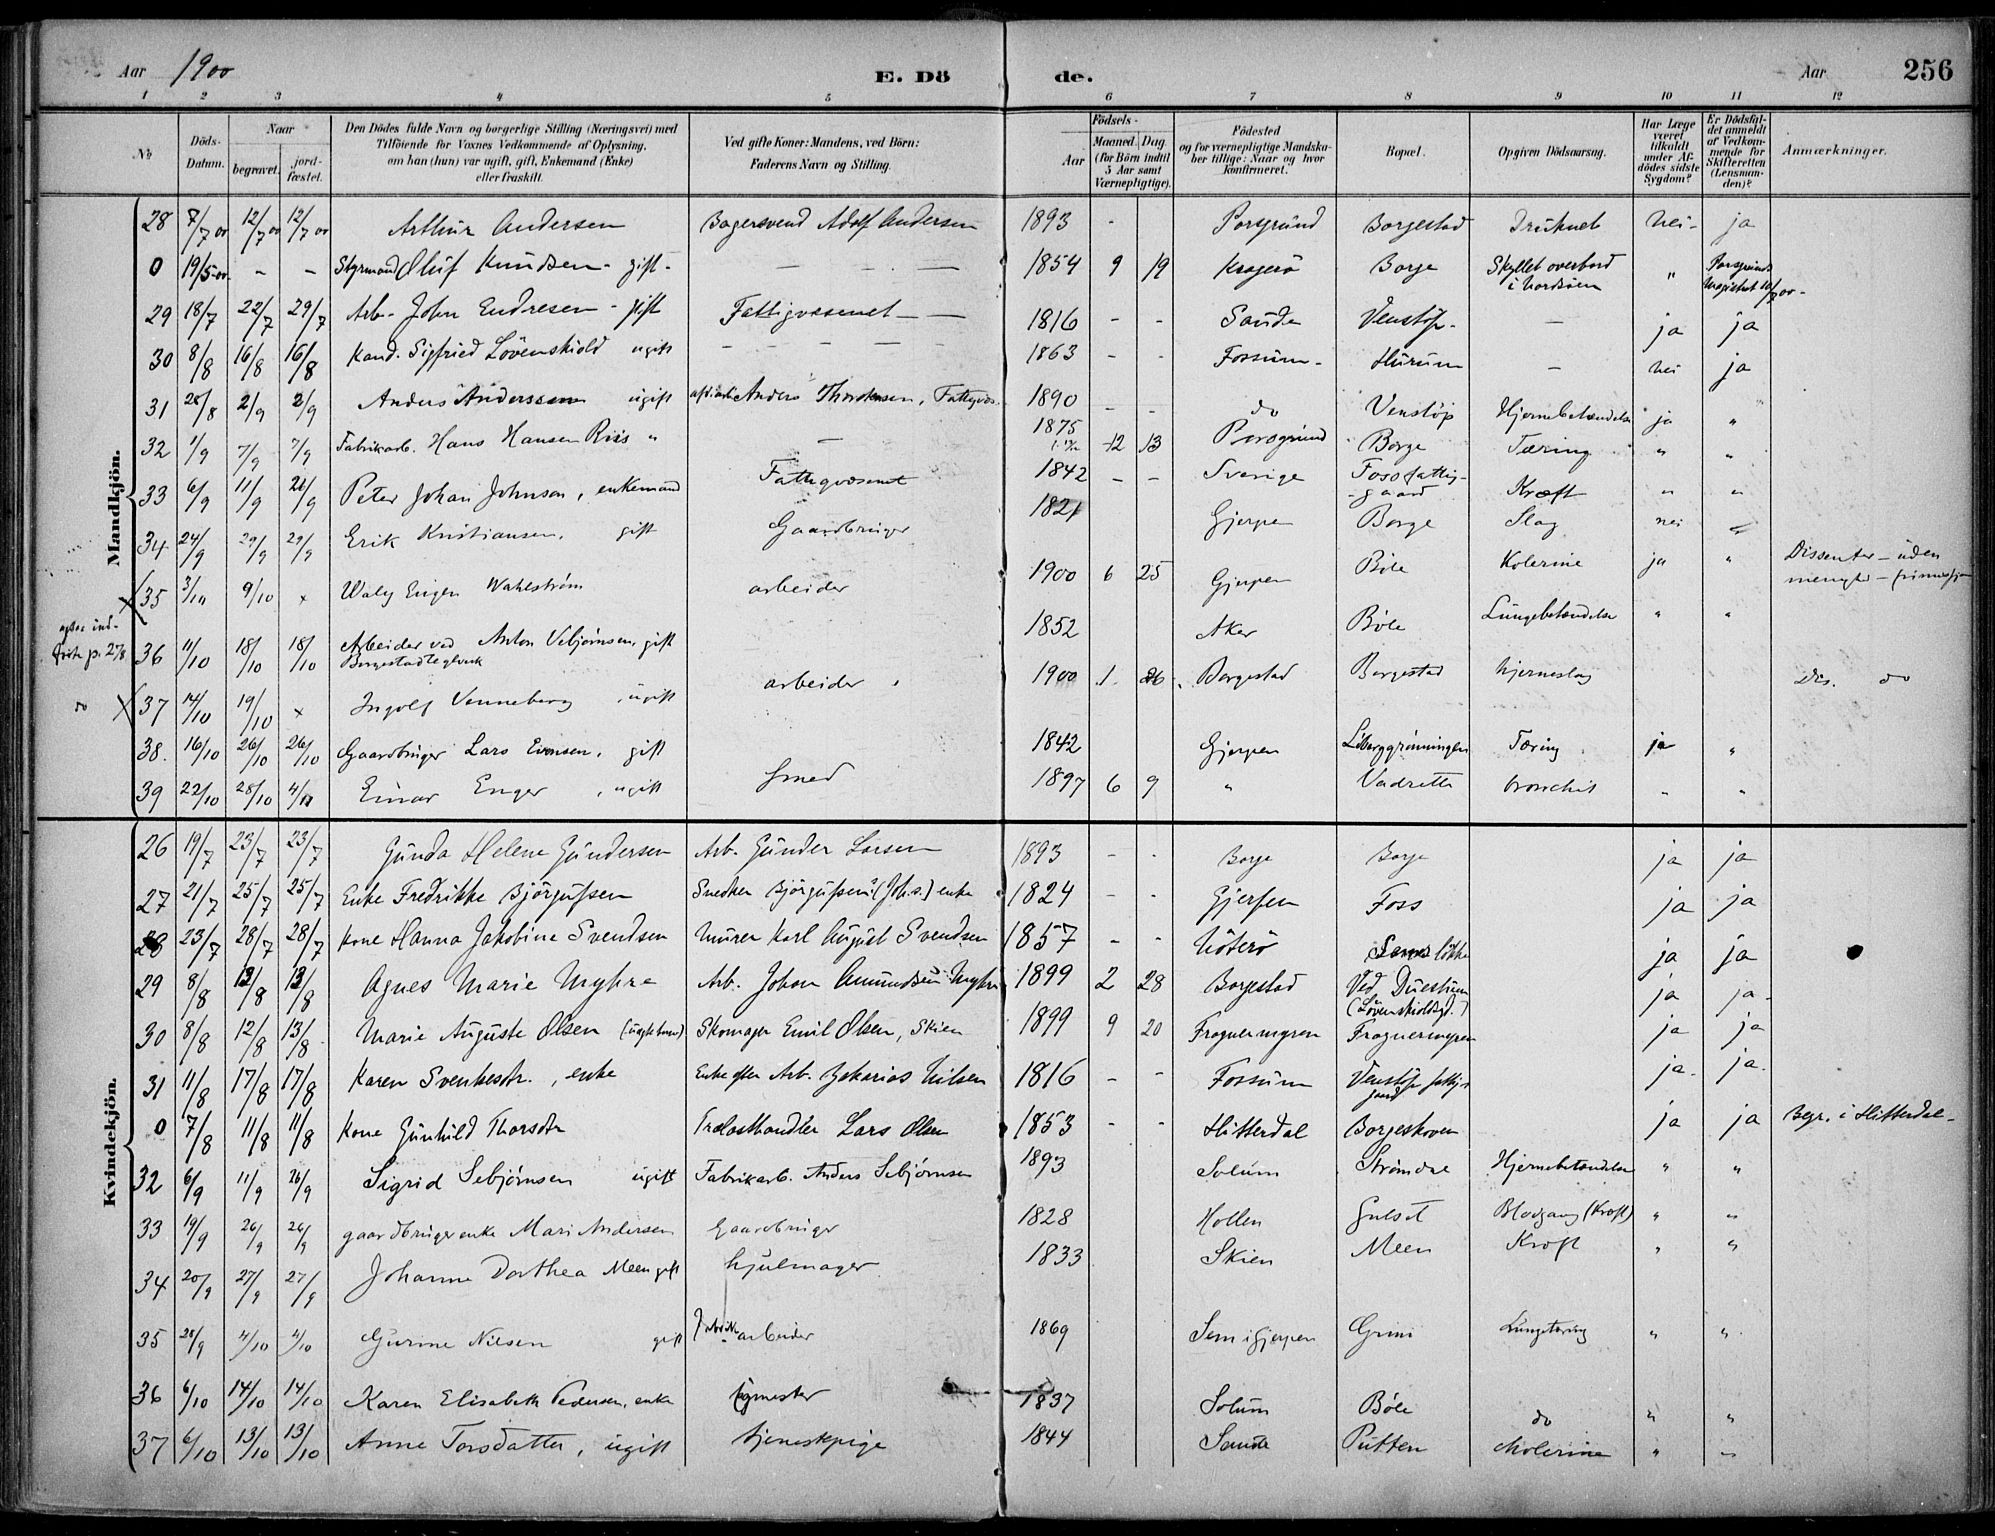 Aar 1900 E. Döde. Aar 256
1 2 3 4 5 6 7 8 9 10 11 12
No Döds-Datum. Naar begravet. jordfæstet. Den Dödes fulde Navn og borgerlige Stilling (Næringsvei) med Tilföiende for Voxnes Vedkommende af Oplysning, om han (hun) var ugift, gift, Enkemand (Enke) eller fraskilt. Ved gifte Koner: Mandens, ved Börn: Faderens Navn og Stilling. Födsels- Aar Maaned. Dag (for Börn indtil 5 Aar samt Værnepligtige). Födested og for værnepligtige Mandskaber tillige: Naar og hvor konfirmeret. Bopæl. Opgiven Dödsaarsag. Har Læge været tilkaldt under Afdödes sidste Sygdom? Er Dödsfaldet anmeldt af Vedkommende for Skifteretten (Lensmanden)? Anmærkninger.
Mandkjön.
28 7/7 00 12/7 00 12/7 00 Arthur Andersen Bagersvend Adolf Andersen 1893 - Porsgrund Borgestad Druknet nei - ja
0 19/5 00 - - Styrmand Oluf Knudsen - gift - — — — 1854 9 19 Kragerö Borge Skyllet overbord i Nordsöen " Porsgrunds Magistrat 10/7 00 -
29 18/7 22/7 29/7 Arb. John Endresen - gift Fattigvæsenet — — 1816 - - Saude Venstöp - — ja ja
30 8/8 16/8 16/8 Kand. Sigfried Lövenskiold ugift - - - - - 1863 - - Fossum - Hurum — nei ja
31 28/8 2/9 2/9 Anders Anderssen ugift Anders Thordensen, Fattigvæs. 1890 - - do Venstöp Hjernebetændelse ja "
32 1/9 7/9 7/9 Fabrikarb. Hans Hansen Riis " — 1875 12 13 Porsgrund Borge Tæring " "
33 6/9 11/9 26/9 Peter Johan Johnson, enkemand Fattigvæsenet 1842 - - Sverige Foss fattig-gaard Kræft " "
34 24/9 29/9 29/9 Erik Kristiansen, gift Gaardbruger 1821 Gjerpen Borge Slag nei "
35 3/10 9/10 x Waly Eugen Wahlström arbeider 1900 6 25 Gjerpen Böle Kolerine ja " Dissenter - uden
36 11/10 18/10 18/10 Arbeider ved Borgestad teglverk Anton Vebjörnsen, gift 1852 Aker Böle Lungebetændelse " "
37 14/10 19/10 x Ingolf Venneberg ugift arbeider 1900 1 26 Borgestad Borgestad hjerneslag Dis. do
do
38. 16/10 26/10 26/10 Gaardbruger Lars Evensen, gift 1842 Gjerpen Tæring ja "
39 22/10 28/10 4/11 Einar Enger, ugift Smed 1897 6 9 " Vadrette bronchit " "
Kvindekjön.
26 19/7 23/7 23/7 Gunda Helene Gundersen Arb. Gunder Larsen 1893 - - Borge Borge ja ja
27 21/7 25/7 25/7 Enke Fredrikke Björgufsen Snedker Björgufsens (Joh.s.) enke 1824 - - Gjerpen Foss ja ja
28 23/7 28/7 28/7 Kone Hanna Jakobine Svendsen Murer Karl August Svendsen 1857 - - Nöterö ja ja
29 8/8 13/8 13/8 Agnes Marie Myhre Arb. Johan Amundsen Myhre 1899 2 28 Borgestad Ved Duestuen (Lövenskioldsgd.) ja ja -
30 8/8 12/8 13/8 Marie Auguste Olsen Skomager Emil Olsen, Skien 1899 9 20 Frognermyren Frognermyren ja ja
31 11/8 17/8 17/8 Karen Svenkesdtr., enke Enke efter Arb. Zakarias Nilsen 1816 - - Fossum Venstöp fattiggaard ja - ja.
0 7/8 11/8 11/8 Kone Gunhild Thorsdtr Trælasthandler Lars Olsen 1853 - - Hitterdal Borgeskoven ja ja Begr. i Hitterdal -
32 6/9 11/9 26/9 Sigrid Sebjörnsen ugift Fabrikarb. Anders Sebjörnsen 1893 Solum Strömdal Hjernebetændelse " "
33 19/9 26/9 26/9 gaardbrugerenke Mari Andersen Gaardbruger 1828 Hollen Gulset Blodgang (Kræft) " "
34 20/9 27/9 27/9 Johanne Dorthea Meen gift hjulmager 1833 Skien Meen Kræft " "
35 28/9 4/10 4/10 Gurine Nilsen gift Fabrikarbeider 1869 Sem i Gjerpen Grini Lungetæring " "
36 6/10 14/10 14/10 Karen Elisabeth Pedersen, enke 1837 Solum Böle do " "
37 6/10 13/10 13/10 Anne Torsdatter, ugift tjenestpige 1844 Sande Putten cholerine " "